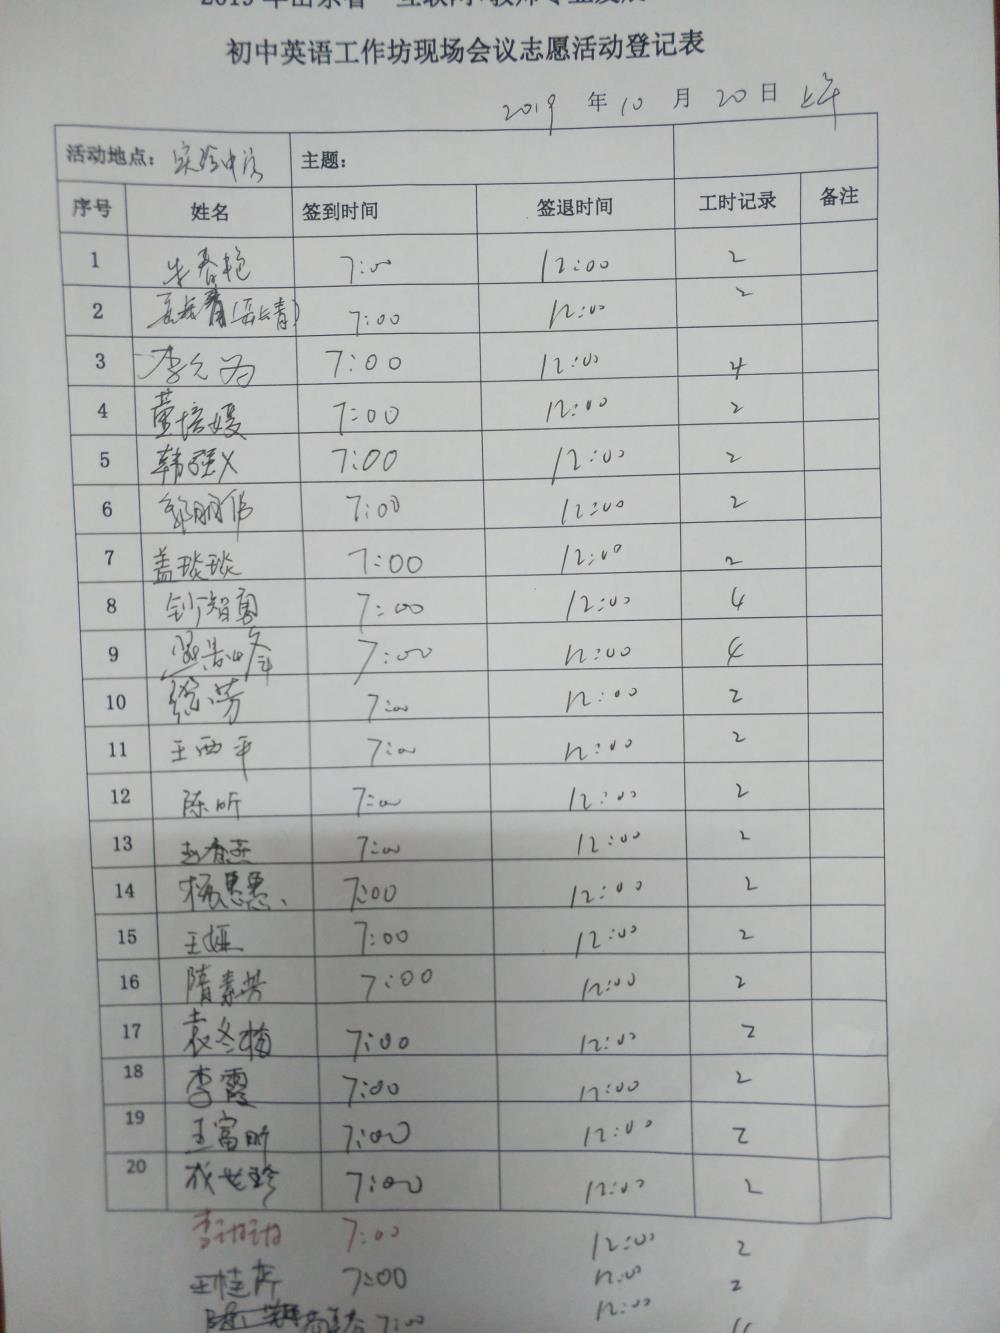 初中英语工作坊现场会议志愿活动登记表
2019 年 10 月 20 日 上午
活动地点：实验中学 主题：
序号 姓名 签到时间 签退时间 工时记录 备注
1 朱春艳 7:00 12:00 2
2 7:00 12:00 2
3 李允为 7:00 12:00 4
4 董培媛 7:00 12:00 2
5 韩强义 7:00 12:00 2
6 郭朋伟 7:00 12:00 2
7 盖琰琰 7:00 12:00 2
8 智勇 7:00 12:00 4
9 7:00 12:00 4
10 徐芳 7:00 12:00 2
11 王西平 7:00 12:00 2
12 陈昕 7:00 12:00 2
13 7:00 12:00 2
14 杨惠惠 7:00 12:00 2
15 王娅 7:00 12:00 2
16 隋素芳 7:00 12:00 2
17 袁冬梅 7:00 12:00 2
18 李霞 7:00 12:00 2
19 王富昕 7:00 12:00 2
20 7:00 12:00 2
7:00 12:00 2
王桂芹 7:00 12:00 2
7:00 12:00